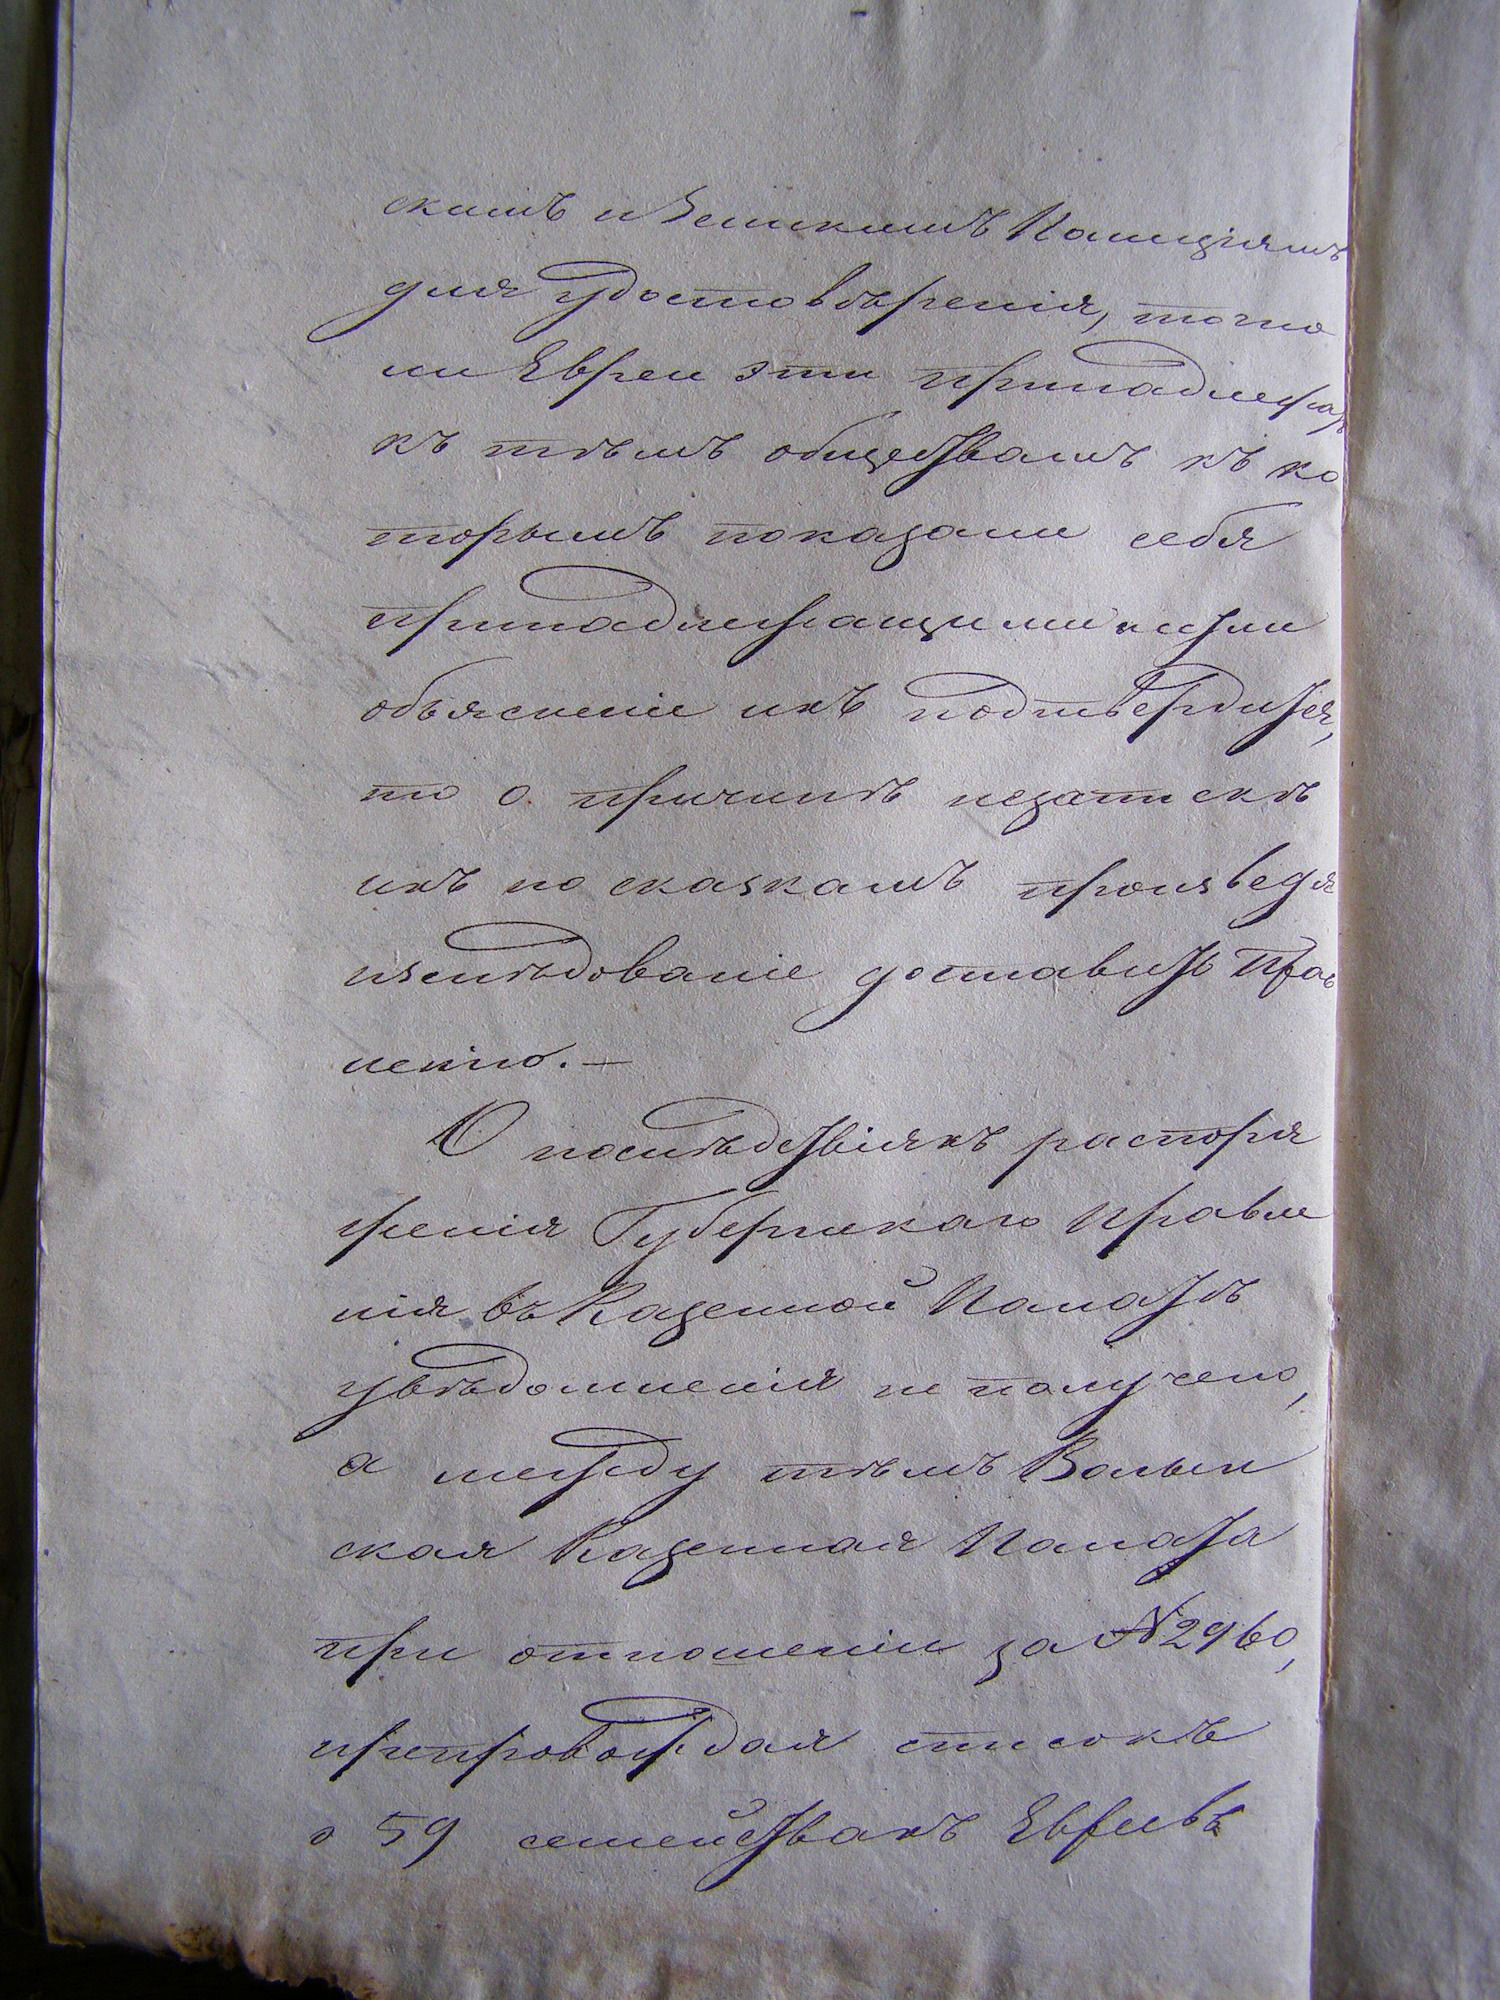 скимъ и Земскимъ Полиціямъ
для удостовѣренія, точно
ли Евреи эти принадлежатъ
къ тѣмъ обществамъ къ ко
торымъ показали себя
принадлежащими и если
объясненіе ихъ подтвердится,
то о причинѣ незапискѣ
ихъ по сказкамъ произведя
изслѣдованіе доставить Прав
ленію. —
О послѣдствіяхъ распоря
женія Губернскаго Правле
нія въ Казенной Палатѣ
увѣдомленія не получено,
а между тѣмъ Волын
ская Казенная Палата
при отношеніи за № 2960,
препровождая списокъ
о 59 семействахъ Евреевъ